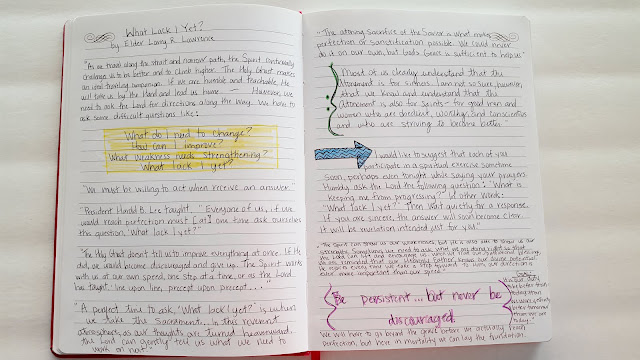 What Lack I Yet?
by Elder Larry R. Lawrence
"As we travel along the strait and narrow path, the Spirit continually
challenges us to be better and to climb higher. The Holy Ghost makes
an ideal traveling companion. If we are humble and teachable, He
will take us by the hand and lead us home. — However, we
need to ask the Lord for directions along the way. We have to
ask some difficult questions like:
What do I need to change?
How can I improve?
What weakness needs strengthening?
What lack I yet?"
"We must be willing to act when receive an answer."
"President Harold B. Lee taught, "Everyone of us, if we
would reach perfection must [at] one time ask ourselves
this question, 'What lack I yet?'"
"The Holy Ghost doesn't tell us to improve everything at once. If He
did, we would become discouraged and give up. The Spirit works
with us at our own speed, one step at a time, or as the Lord
has taught, 'line upon line, precept upon precept...'"
"A perfect time to ask, 'What lack I yet?' is when
we take the Sacrament. In this reverent
atmosphere, as our thoughts are turned heavenward,
the Lord can gently tell us what we need to
work on next."
"The atoning sacrifice of the Savior is what makes
perfection or sanctification possible. We could never
do it on our own, but God's Grace is sufficient to help us."
"Most of us clearly understand that the
Atonement is for sinners. I am not so sure, however,
that we know and understand that the
Atonement is also for saints - for good men and
women who are obedient, worthy, and conscientious
and who are striving to become better."
"I would like to suggest that each of you
participate in a spiritual exercise sometime
soon, perhaps even tonight while saying your prayers.
Humbly ask the Lord the following question: 'What is
keeping me from progressing?' In other words:
"What lack I yet?" Then wait quietly for a response.
If you are sincere, the answer will soon become clear.
It will be revelation intended just for you."
"The Spirit can show us our weaknesses, but He is also able to show us our
strengths. Sometimes we need to ask what we are doing right so that
the Lord can lift and encourage us.
Heavenly Father knows our divine potential.
He rejoices every time we take a step forward. To Him, our direction is
ever more important than our speed.
Be persistent... but never be
discouraged.
We will have to go beyond the grave before we actually reach
perfection, but here in mortality we can lay the foundation.
"It is our duty
to be better today
than yesterday
and
better tomorrow
than we are
today."